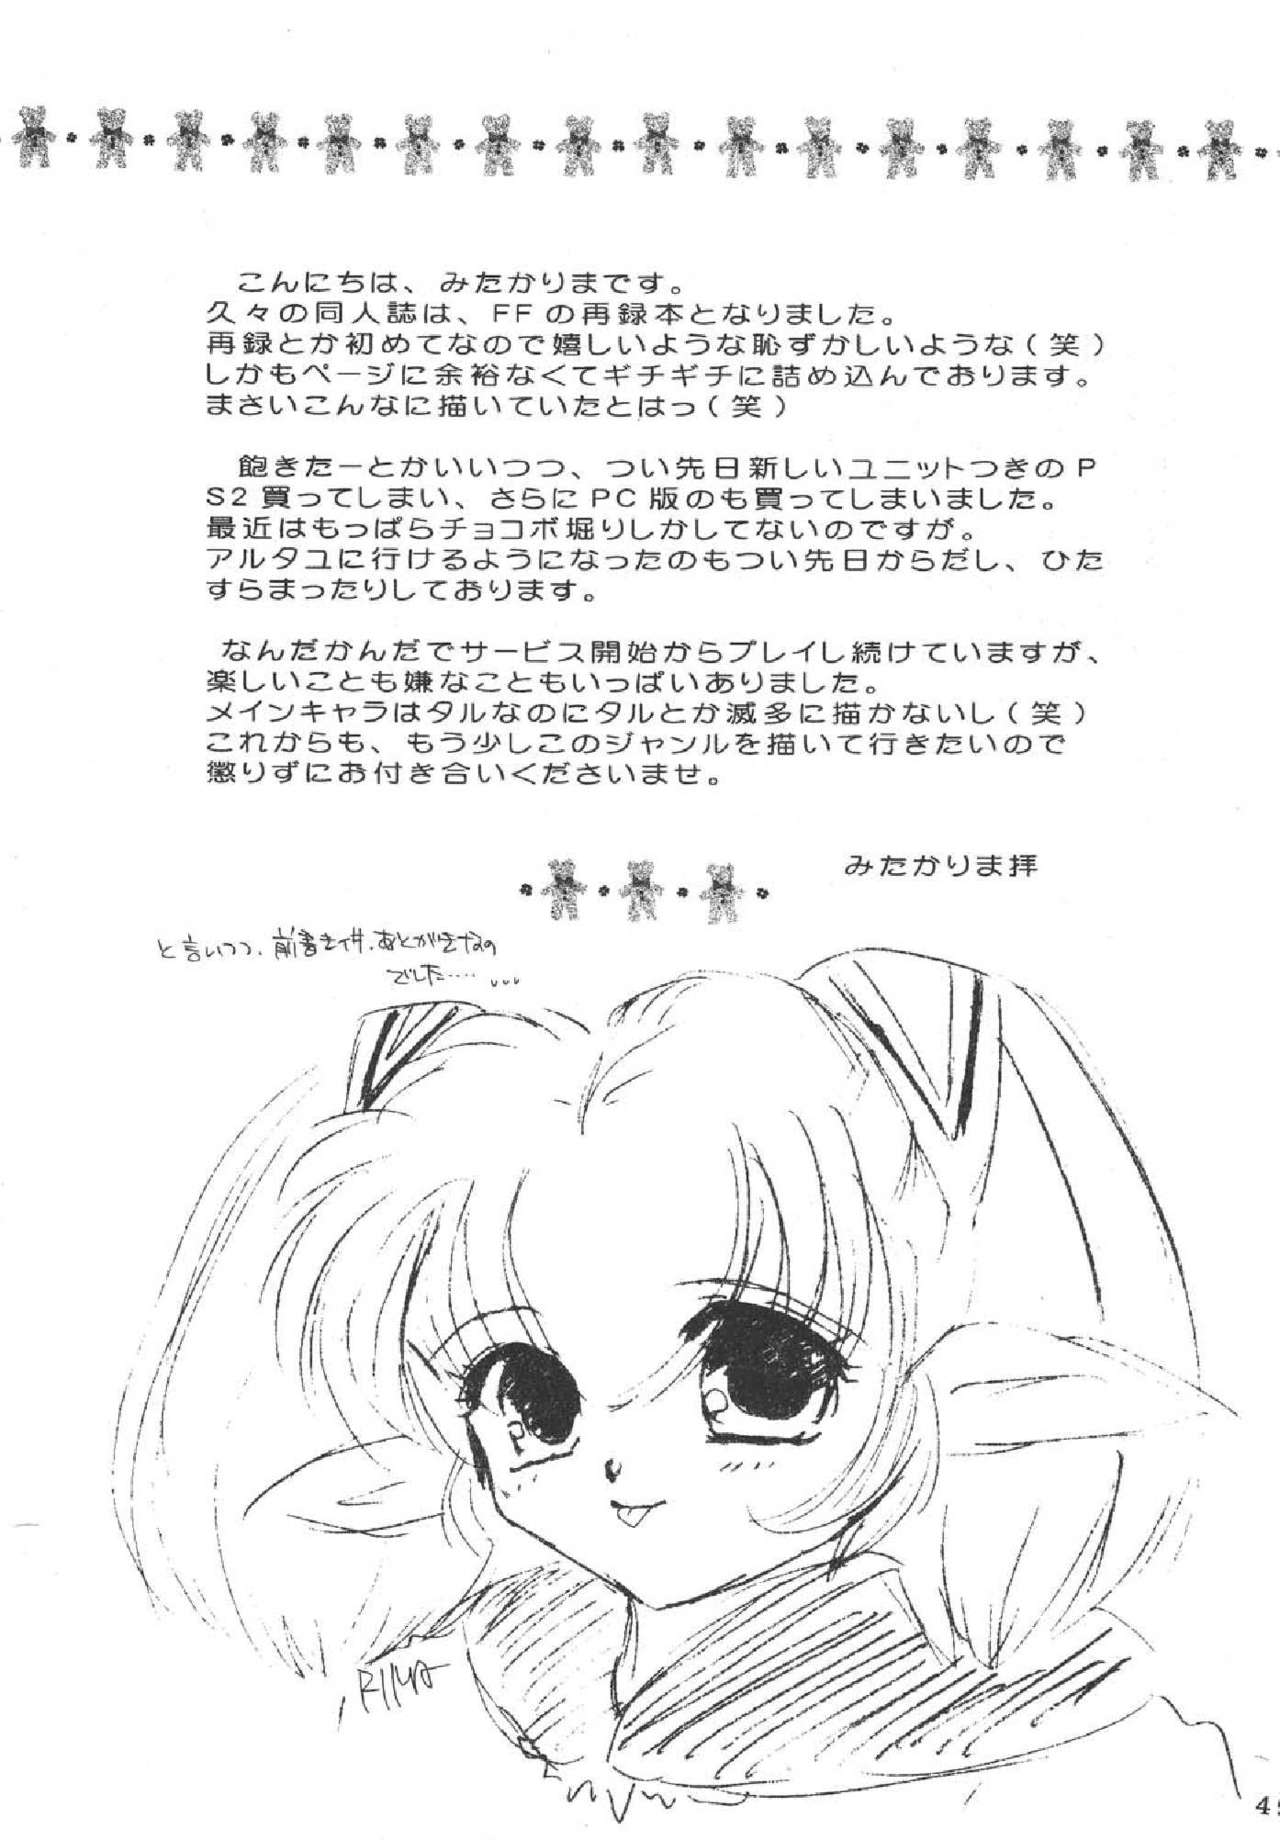 こんにちは、みたかりまです。
久々の同人誌は、FFの再録本となりました。
再録とか初めてなので嬉しいような恥ずかしいような(笑)
しかもページに余裕なくてギチギチに詰め込んでおります。
まさいこんなに描いていたとはっ(笑)
飽きたーとかいいつつ、つい先日新しいユニットつきのP
S2買ってしまい、さらにPC版のも買ってしまいました。
最近はもっぱらチョコボ堀りしかしてないのですが。
アルタユに行けるようになったのもつい先日からだし、ひた
すらまったりしております。
なんだかんだでサービス開始からプレイし続けていますが、
楽しいことも嫌なこともいっぱいありました。
メインキャラはタルなのにタルとか滅多に描かないし(笑)
これからも、もう少しこのジャンルを描いて行きたいので
懲りずにお付き合いくださいませ。
みたかりま拝
と言いつつ、前書き兼、あとがきなの
でした……
RIMA